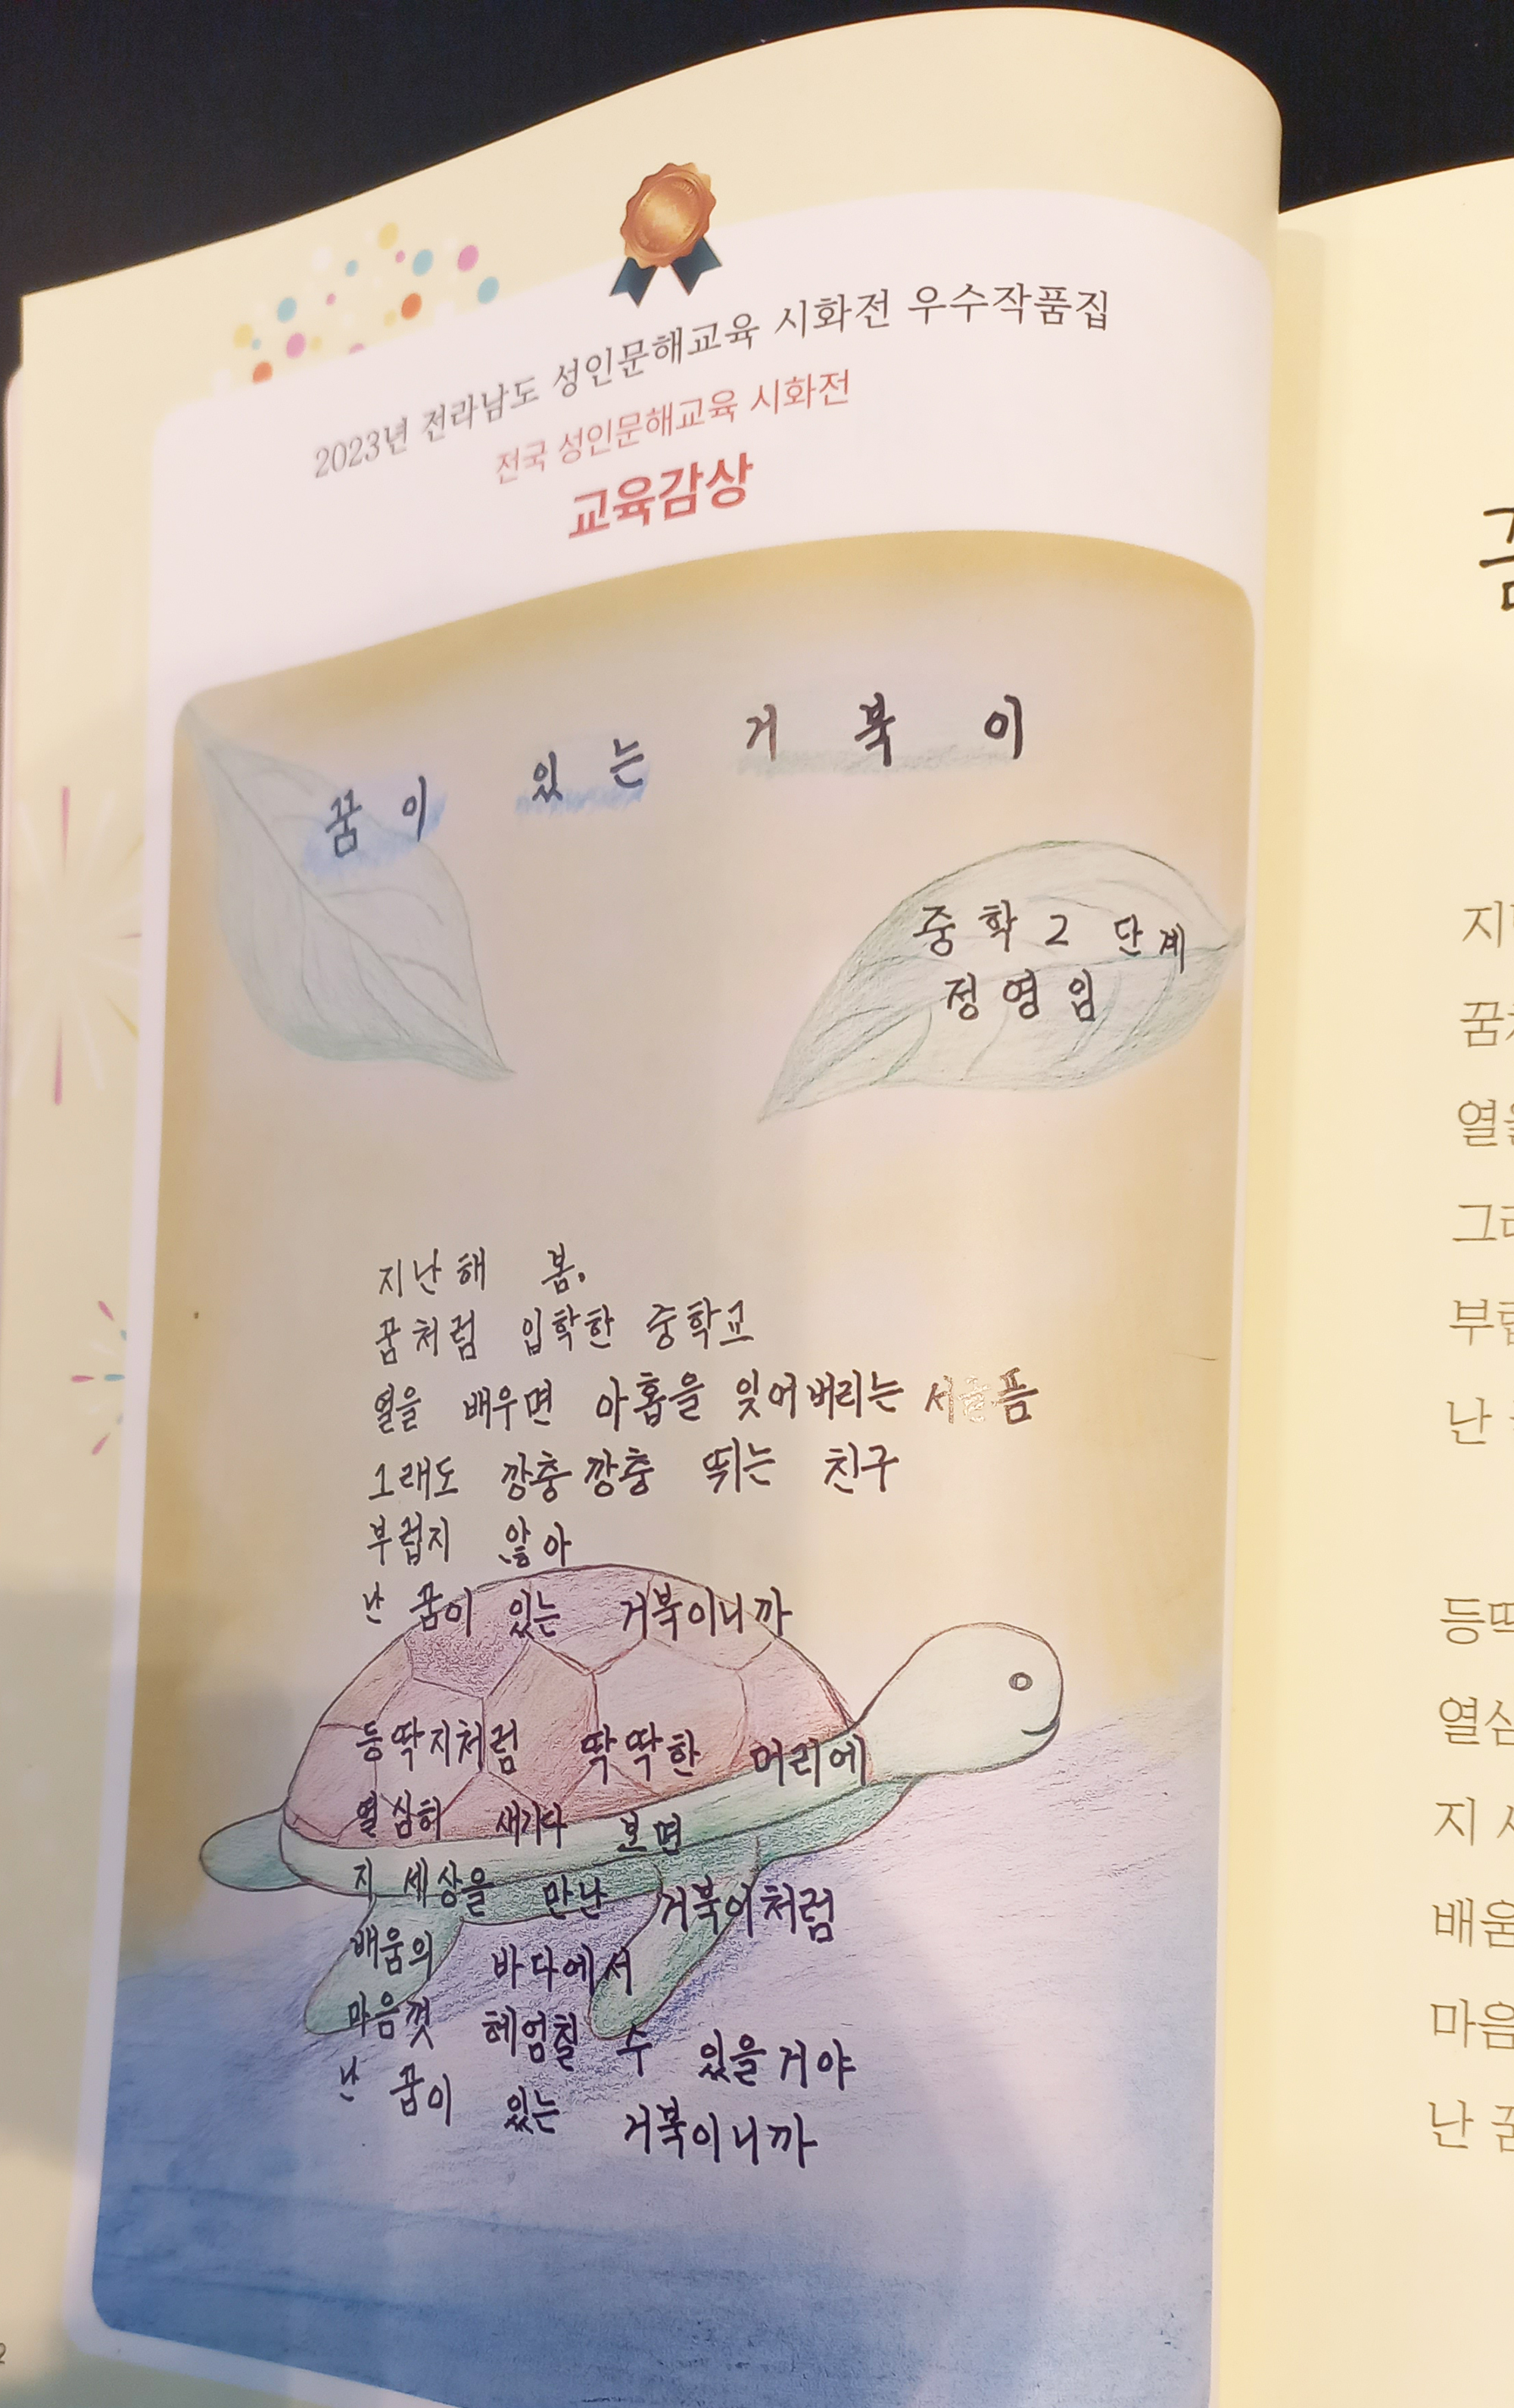 2023년 전라남도 성인문해교육 시화전 우수작품집
전국 성인문해교육 시화전
교육감상
꿈이 있는 거북이
중학2단계
정영임
지난해 봄.
꿈처럼 입학한 중학교
열을 배우면 아홉을 잊어버리는 서글픔
그래도 깡충깡충 뛰는 친구
부럽지 않아
난 꿈이 있는 거북이니까
등딱지처럼 딱딱한 머리에
열심히 새기다 보면
지 세상을 만난 거북이처럼
배움의 바다에서
마음껏 헤엄칠 수 있을거야
난 꿈이 있는 거북이니까
2
지
열을
부럽
난
열심
지
배움
마음
난